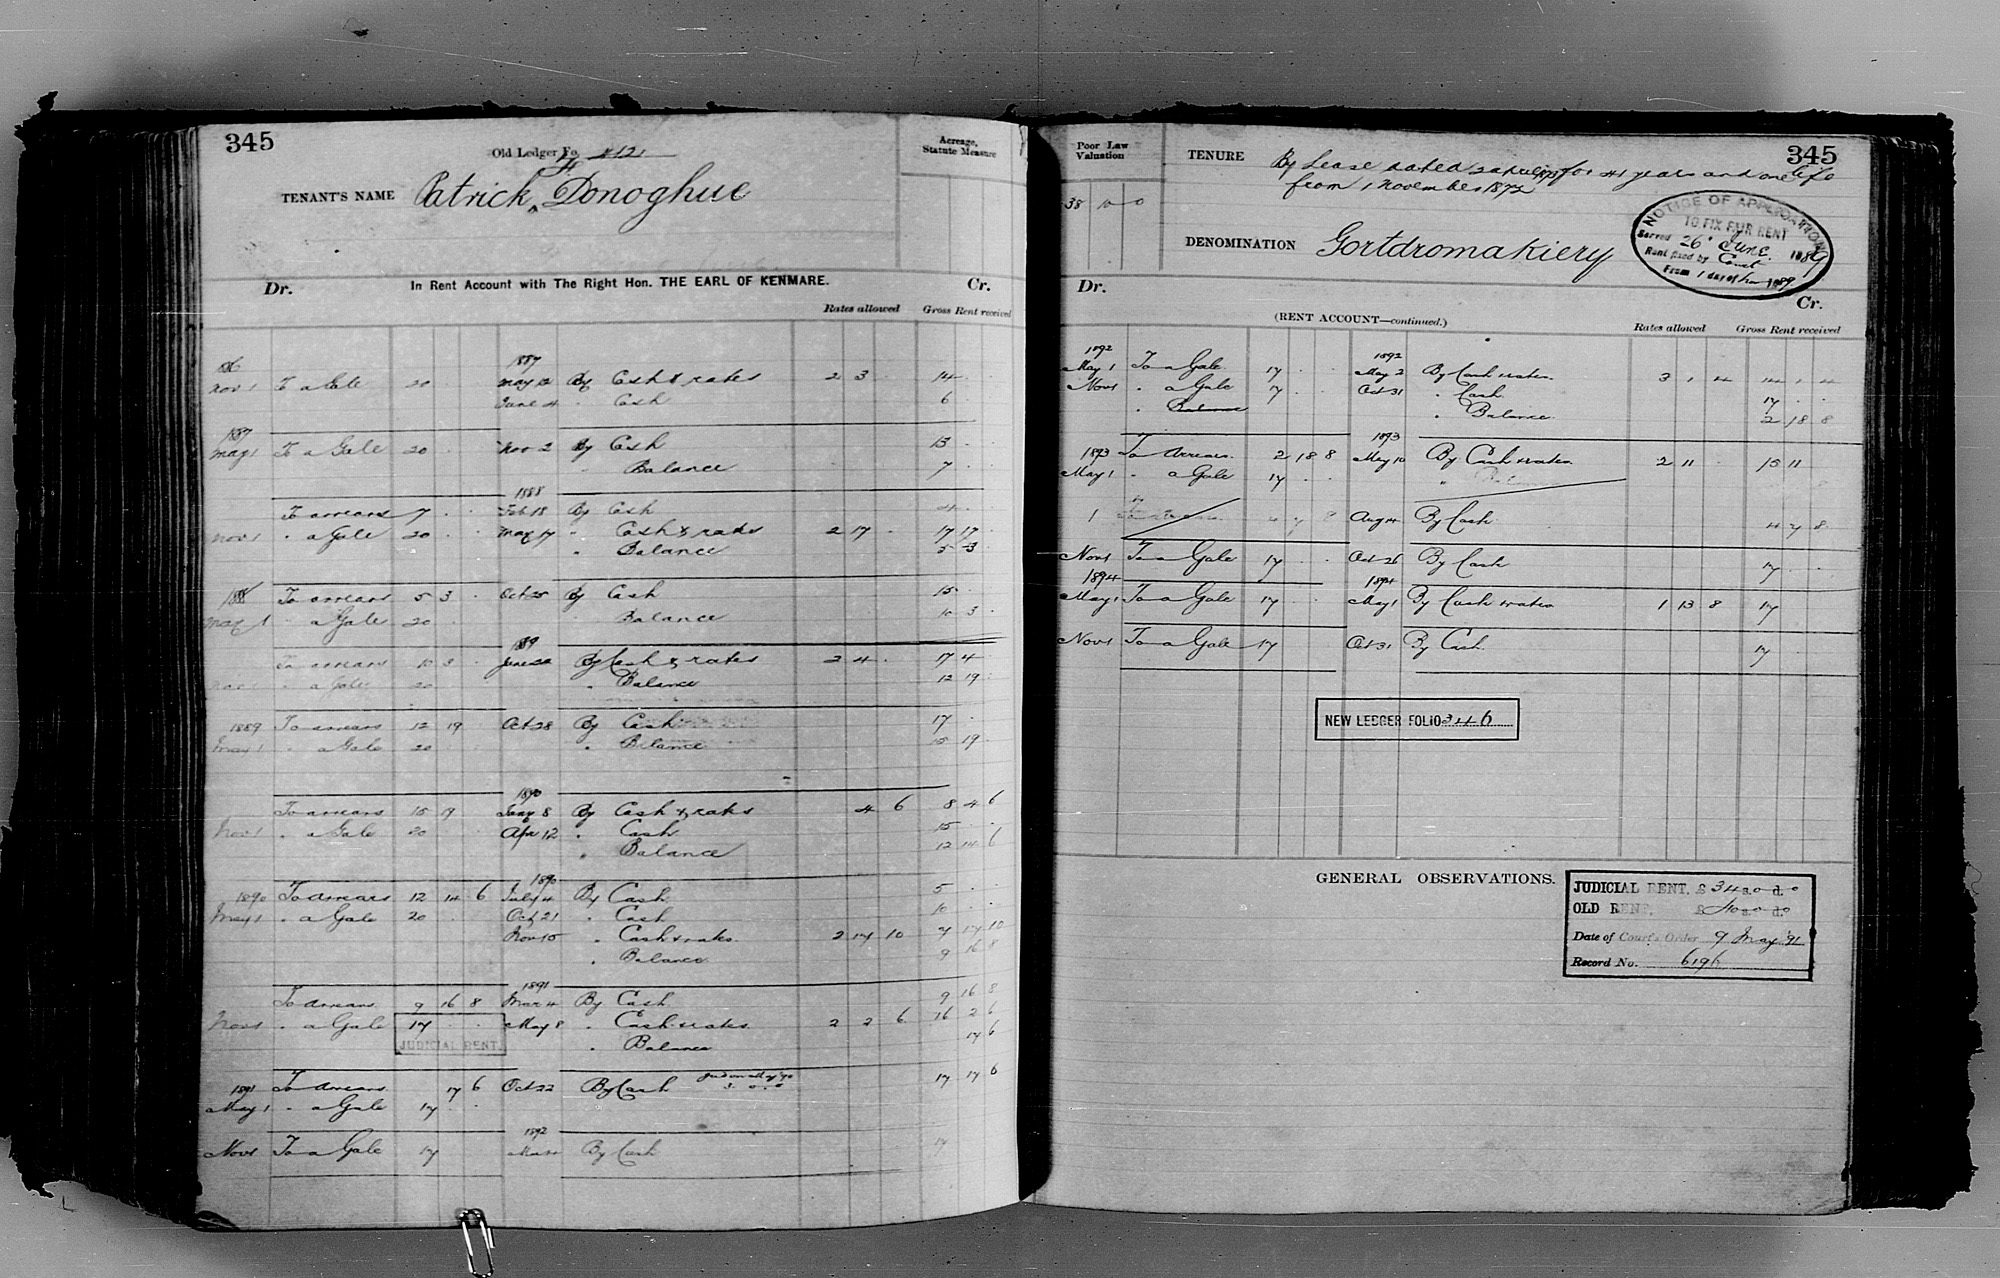 345
Old Ledger Fo. 412
Acreage, Statute Measure
TENANT'S NAME Patrick Donoghue
Dr. In Rent Account with The Right Hon. THE EARL OF KENMARE. Cr.
Rates allowed Gross Rent received
1887
Nov 1 To a Gale 20 May 12 By Cash & rates 2 3 14
June 4 " Cash 6
1887
May 1 To a Gale 20 Nov 2 By Cash 13
Balance 7
1888
To arrears 7 Feb 18 By Cash 4
Nov 1 " a Gale 20 May 17 " Cash & rates 2 17 17 17
" Balance 5 3
1888 To arrears 5 3 Oct 25 By Cash 15
May 1 " a Gale 20 Balance 10 3
1889
To arrears 10 3 June By Cash & rates 2 4 17 4
Nov 1 " a Gale 20 " Balance 12 19
1889 To arrears 12 19 Oct 28 By Cash 17
May 1 " a Gale 20 " Balance 15 19
1890
To arrears 15 19 Jany 8 By Cash & rates 4 6 8 4 6
Nov 1 " a Gale 20 Apr 12 " Cash 15
" Balance 12 14 6
1890
1890 To arrears 12 14 6 July 4 By Cash 5
May 1 " a Gale 20 Oct 21 " Cash 10
Nov 15 " Cash & rates 2 17 10 7 17 10
" Balance 9 16 8
1891
To arrears 9 16 8 Mar 4 By Cash 9 16 8
Nov 1 " a Gale 17 May 8 " Cash & rates 2 2 6 16 2 6
JUDICIAL RENT. " Balance 17 6
1891 To arrears 17 6 Oct 22 By Cash 3 . 0 . 0 17 17 6
May 1 " a Gale 17
1892
Nov 1 To a Gale 17 Mar By Cash 17
345
Poor Law Valuation
38 10 0
TENURE By Lease dated 2 April 1873 for 41 years and one life
from 1 November 1872
DENOMINATION Gortdromakiery
NOTICE OF APPLICATION
TO FIX FAIR RENT
Served 26 June 1889
Rent fixed by Court
From 1 day of Nov 1889
Dr. Cr.
(RENT ACCOUNT—continued.)
Rates allowed Gross Rent received
1892 1892
May 1 To a Gale 17 May 2 By Cash & rates 3 1 4 14 1 4
Nov 1 " a Gale 17 Oct 31 " Cash 17
" Balance " Balance 2 18 8
1893
1893 To Arrears 2 18 8 May 10 By Cash & rates 2 11 15 11
May 1 " a Gale 17 " Balance
1 4 7 8 Aug 14 By Cash 4 7 8
Nov 1 To a Gale 17 Oct 26 By Cash 17
1894 1894
May 1 To a Gale 17 May 1 By Cash & rates 1 13 8 17
Nov 1 To a Gale 17 Oct 31 By Cash 17
NEW LEDGER FOLIO 346
GENERAL OBSERVATIONS.
JUDICIAL RENT. £34 s.0 d.0
OLD RENT. £40 s.0 d.0
Date of Court's Order 9 May '91
Record No. 6196